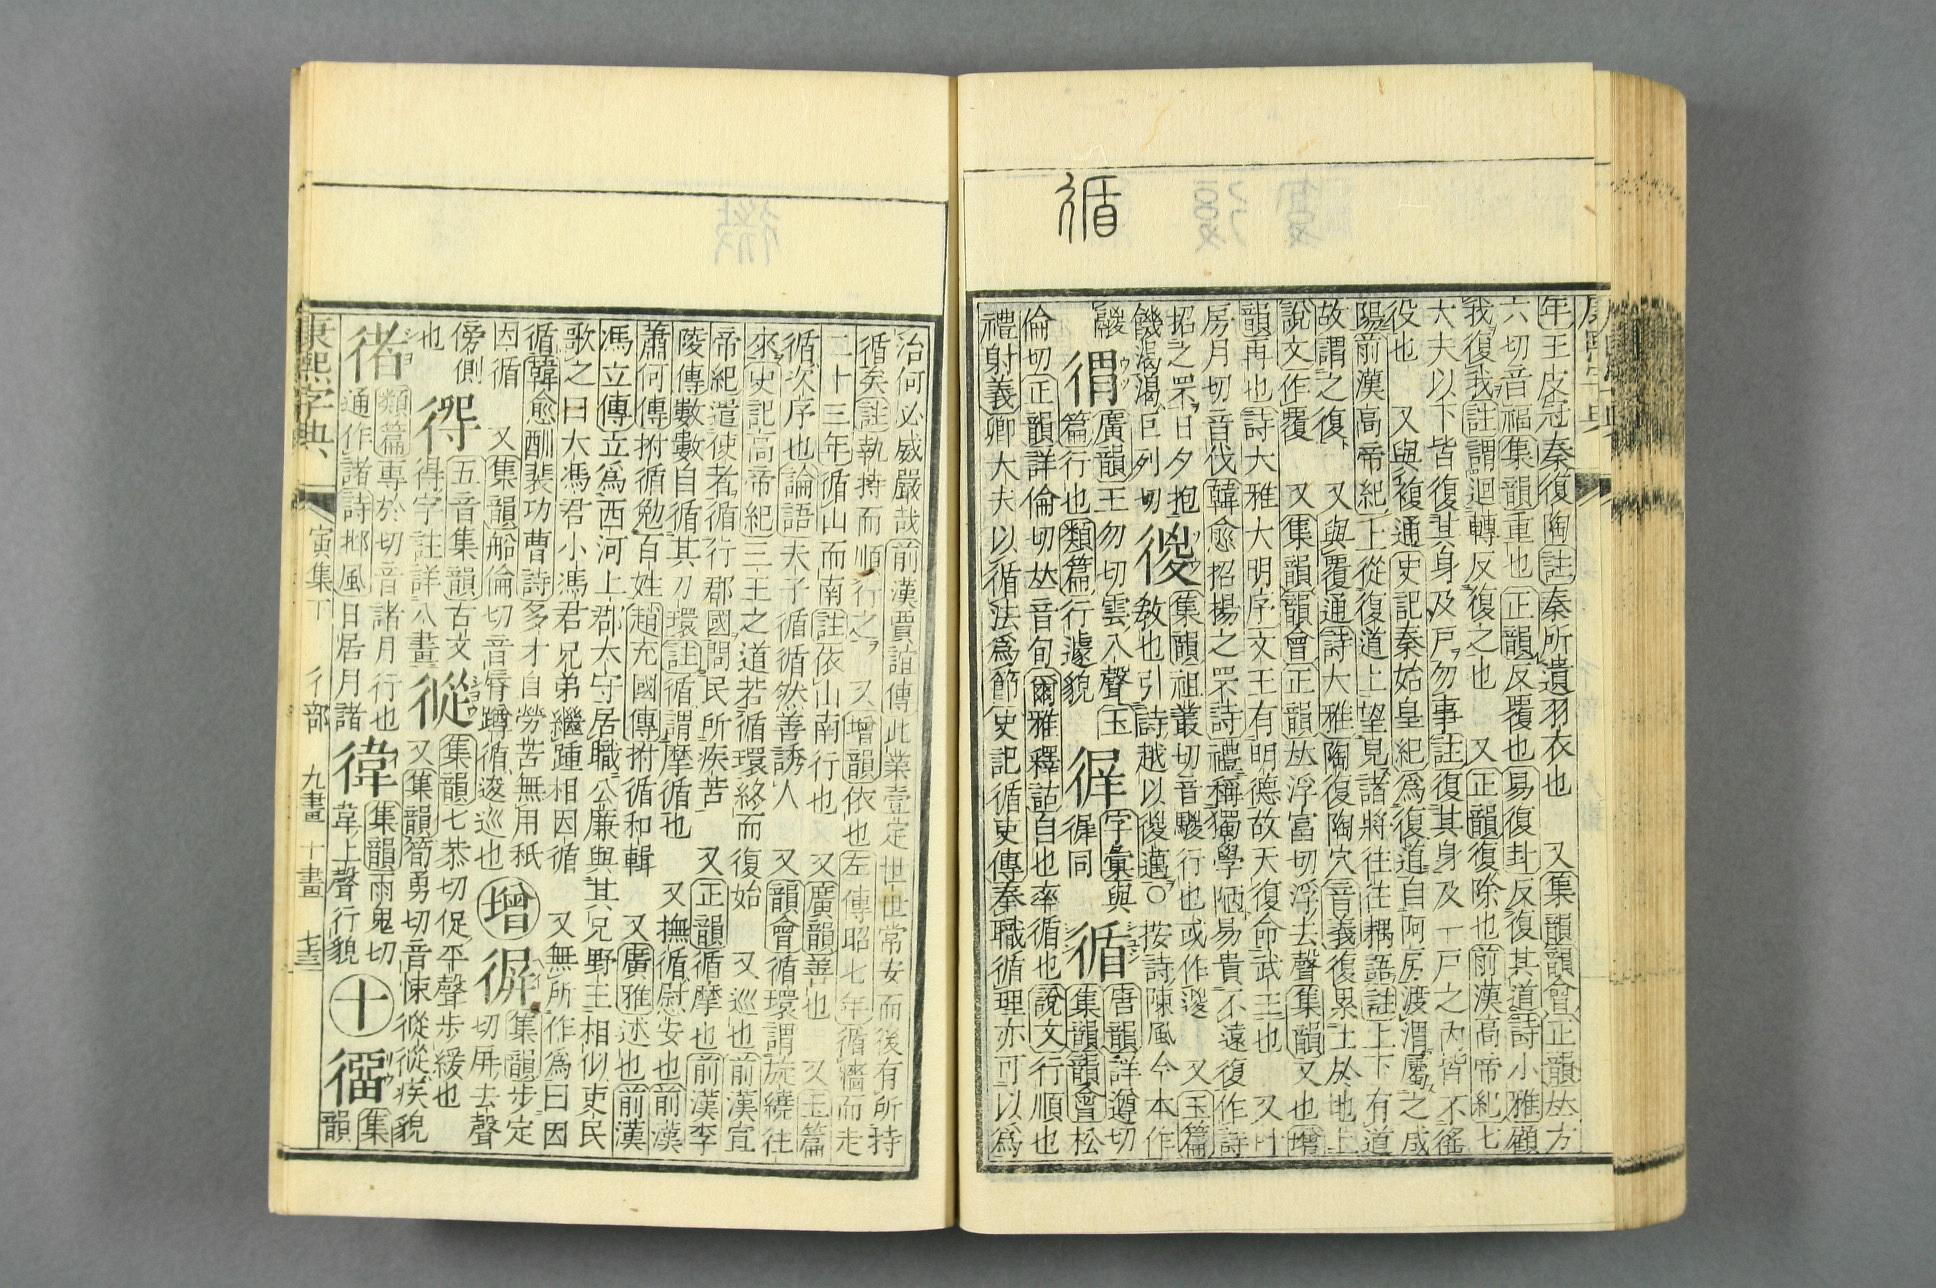 循
年王皮冠秦復陶註秦所遺羽衣也 又集韻韻會正韻𠀤方
六切音福集韻重也正韻反覆也易復封反復其道詩小雅顧
我復我註謂迴轉反復之也 又正韻復除也前漢高帝紀七
大夫以下皆復其身及戸勿事註復其身及一戸之內皆不徭
役也 又與複通史記秦始皇紀爲復道自阿房渡渭屬之咸
陽前漢高帝紀上從復道上望見諸將往往耦語註上下有道
故謂之復 又與覆通詩大雅陶復陶穴音義復累土於地上
說文作覆 又集韻韻會正韻𠀤浮富切浮去聲集韻又也增
韻再也詩大雅大明序文王有明德故天復命武王也 又叶
房月切音伐韓愈招揚之罘詩禮稱獨學陋易貴不遠復作詩
招之罘日夕抱
饑渴渴巨列切
集韻祖叢切音騣行也或作㚇 又玉篇
敎也引詩越以㣭邁○按詩陳風今本作
鬷
廣韻王勿切雲入聲玉
篇行也類篇行遽貌
字彙與
徲同
循
唐韻詳遵切
集韻韻會松
倫切正韻詳倫切𠀤音旬爾雅釋詁自也率循也說文行順也
禮射義卿大夫以循法爲節史記循吏傳奉職循理亦可以爲
治何必威嚴哉前漢賈誼傳此業壹定世世常安而後有所持
循矣註執持而順行之 又增韻依也左傳昭七年循牆而走
二十三年循山而南註依山南行也 又廣韻善也 又玉篇
循次序也論語夫子循循然善誘人 又韻會循環謂旋繞往
來史記高帝紀三王之道若循環終而復始 又巡也前漢宣
帝紀遣使者循行郡國問民所疾苦 又正韻循摩也前漢李
陵傳數數自循其刀環註循謂摩循也 又撫循慰安也前漢
蕭何傳拊循勉百姓趙充國傳拊循和輯 又廣雅述也前漢
馮立傳立爲西河上郡太守居職公廉與其兄野王相似吏民
歌之曰大馮君小馮君兄弟繼踵相因循 又無所作爲曰因
循韓愈酬裴功曹詩多才自勞苦無用秪
因循 又集韻船倫切音脣蹲循逡巡也
增
集韻步定
切屏去聲
傍側
也
五音集韻古文
得字註詳八畫
集韻七恭切促平聲步緩也
又集韻筍勇切音悚 疾貌
類篇專於切音諸月行也
通作諸詩邶風日居月諸
集韻雨鬼切
韋上聲行貌
十
集
韻
康熙字典
寅集下 彳部 九畫 十畫